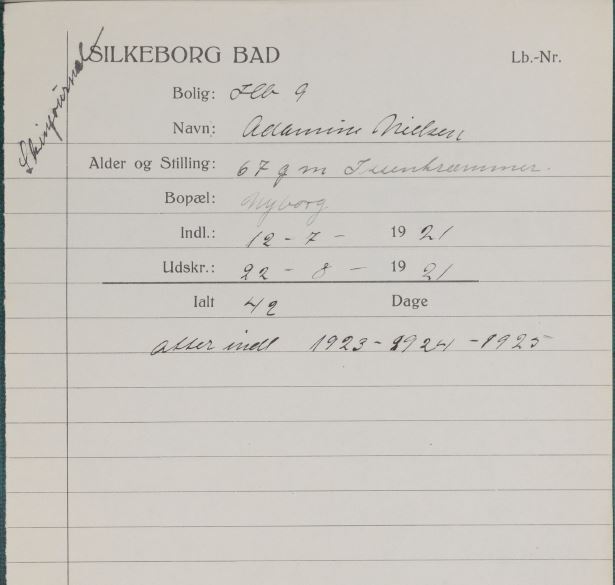 SILKEBORG BAD Lb.-Nr.
Bolig: 9
Navn: Adamine Nielsen
Alder og Stilling: 67 g m
Bopæl: Nyborg
Indl.: 12 - 7 - 1921
Udskr.: 22 - 8 - 1921
Ialt 42 Dage
atter indl 1923 - 1924 - 1925